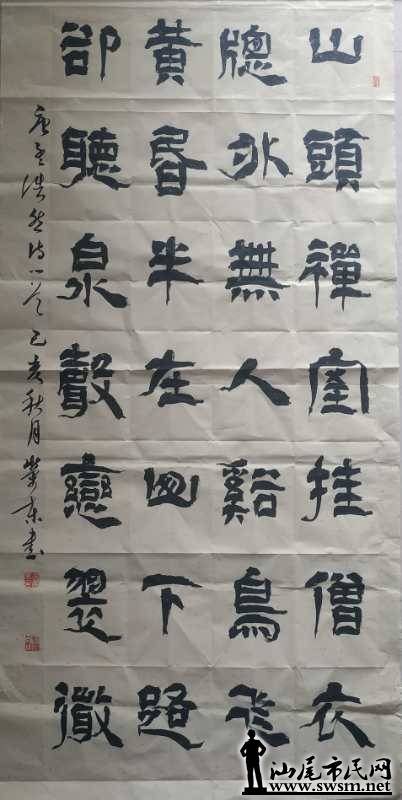 山頭禪室挂僧衣
牕外無人谿鳥飛
黃昏半在山下路
卻聽泉聲戀翠微
唐孟浩然诗一首 己亥秋月 书
汕尾市民网
www.swsm.net